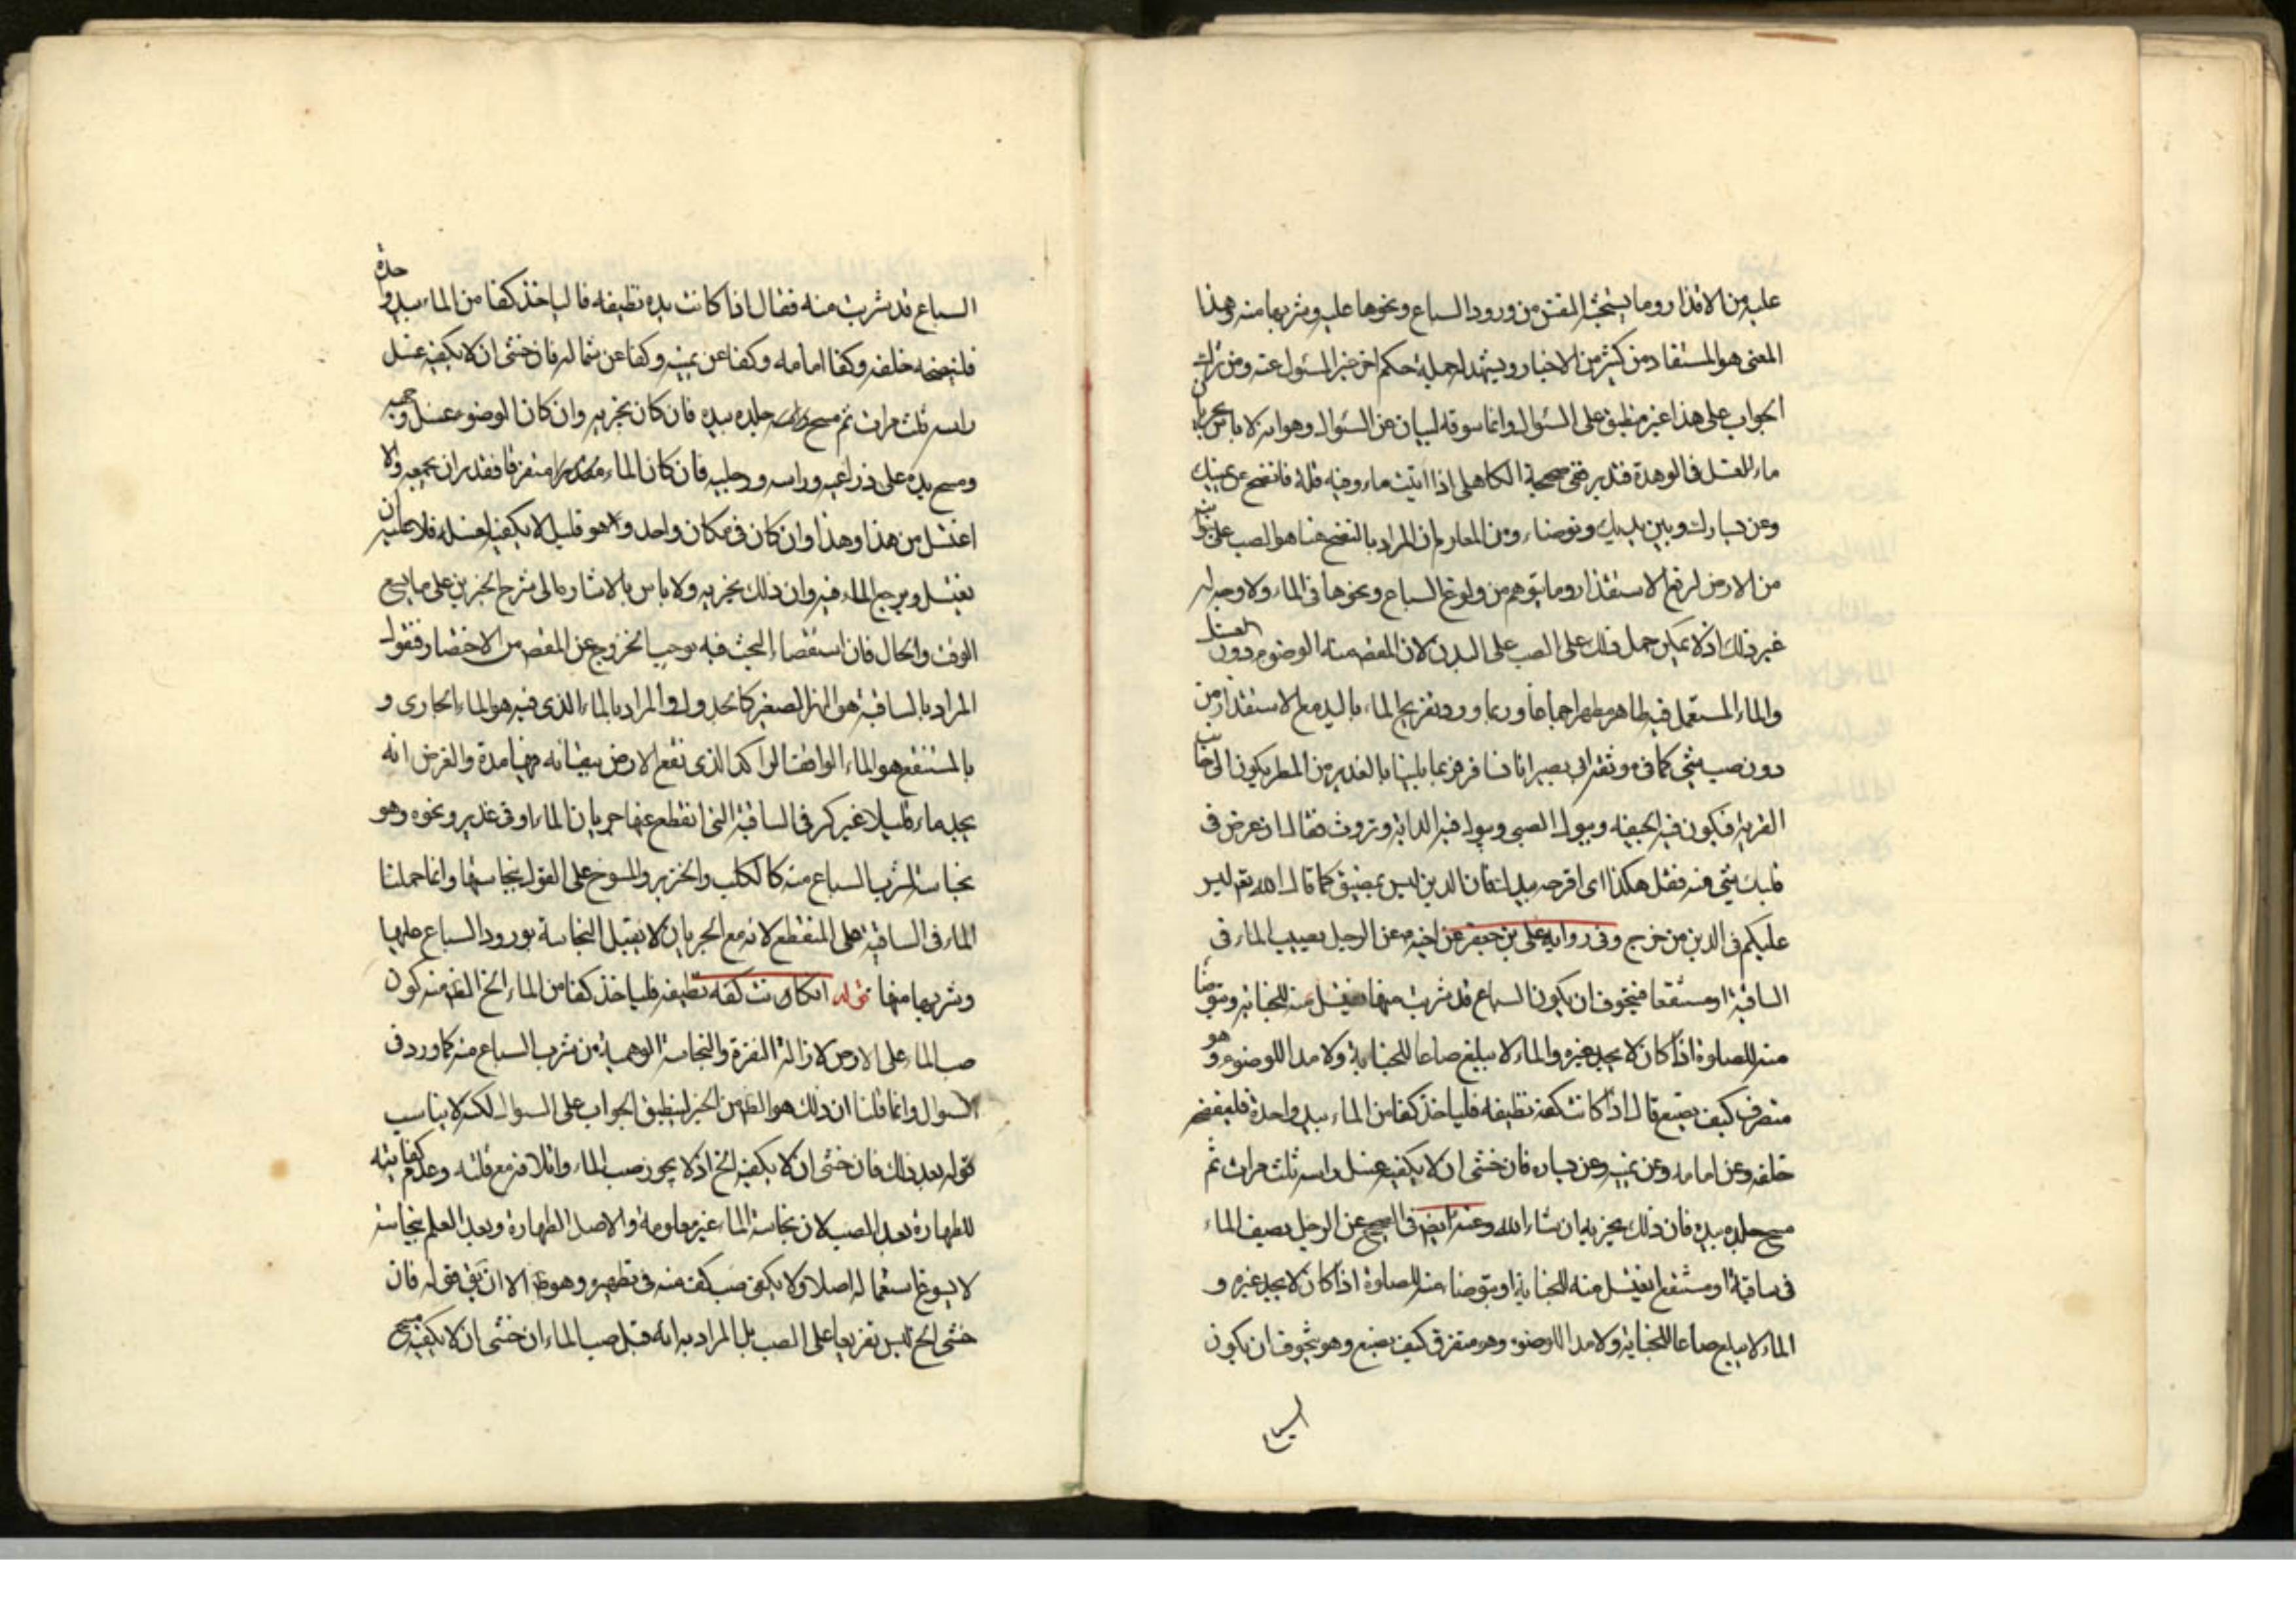 عليه من الاقذار وما يستخبثه النفس من ورود السباع ونحوها عليه وشربها منه وهذا
المعنى هو المستفاد من كثير من الاخبار ويشهد له جملة حكم اخر خبر المسئول عنه ومن ترك
الجواب على هذا غير منطبق على السئوال وانما سوقه لبيان عن السئوال وهو انه لا باس بجريان
ماء الغسل في الوهدة فتدبر ففي صحيحة الكاهلي اذا اتيت ماء وفيه قلة فانضح عن يمينك
وعن يسارك وبين يديك وتوضاء ومن المعلوم ان المراد بالنضح هنا هو الصب على جوانبه
من الارض لرفع الاستقذار وما يتوهم من ولوغ السباع ونحوها في الماء ولا وجه له
غير ذلك اذ لا يمكن حمل ذلك على الصب على البدن لان المقصد منه الوضوء دون الغسل
والماء المستعمل فيه طاهر مطهر اجماعا وربما ورد تفريج الماء باليد مع الاستقذار من
دون صب شيء كما في موثقة ابي بصير انا نسافر فربما بلينا بالغدير من المطر يكون الى جانب
القرية فيكون فيه الجيفة ويبول الصبي ويبول فيه الدابة وتروث فقال ان عرض في
قلبك شيء منه فقل هكذا اي افرجه بيدك فان الدين ليس بمضيق كما قال الله تعم ليس
عليكم في الدين من حرج وفي رواية علي بن جعفر عن اخيه ع عن الرجل يصيب الماء في
الساقية او مستنقعا فيتخوف ان يكون السباع قد شربت منها يغتسل منه للجنابة ويتوضا
منه للصلوة اذا كان لا يجد غيره والماء لا يبلغ صاعا للجنابة ولا مدا للوضوء وهو
متفرق كيف يصنع قال اذا كانت كفه نظيفه فلياخذ كفا من الماء بيد واحدة فلينضحه
خلفه وعن امامه وعن يمينه وعن يساره فان خشى ان لا يكفيه غسل راسه ثلث مرات ثم
مسح جلده بيده فان ذلك يجزيه ان شاء الله وعنه ايض في الصحيح عن الرجل يصيف الماء
في ساقية او مستنقع ايغتسل منه للجنابة او يتوضا منه للصلوة اذا كان لا يجد غيره و
الماء لا يبلغ صاعا للجنابة ولا مدا للوضوء وهو متفرق كيف يصنع وهو يتخوف ان يكون
السباع
السباع قد شربت منه فقال اذا كانت يده نظيفه فالياخذ كفا من الماء بيد واحدة
فلينضحه خلفه وكفا امامه وكفا عن يمينه وكفا عن شماله فان خشى ان لا يكفيه غسل
راسه ثلث مرات ثم مسح جلده بيده فان كان يجزيه وان كان الوضوء غسل وجهه
ومسح يده على ذراعيه وراسه ورجليه فان كان الماء متفرقا فقدر ان يجمعه والا
اغتسل من هذا وهذا وان كان في مكان واحد وهو قليل لا يكفيه لغسله فلا عليه ان
يغتسل ويرجع الماء فيه وان ذلك يجزيه ولا باس بالاشارة الى شرح الخبرين على ما يسع
الوقت والحال فان استقصاء البحث فيه يوجب الخروج عن المقصد من الاختصار فنقول
المراد بالساقية هو النهر الصغير كالجدول والمراد بالماء الذي فيه هو الماء الجاري و
بالمستنقع هو الماء الواقف الراكد الذي نقع الارض ببقائه فيها مدة والغرض انه
يجد ماء قليلا غير كر في الساقية التي انقطع عنها جريان الماء او في غدير ونحوه وهو
نجاسته لشرب السباع منه كالكلب والخنزير والمسوخ على القول بنجاستها وانما حملنا
الماء في الساقية على المنقطع لانه مع الجريان لا يقبل النجاسة بورود السباع عليها
وشربها منها قوله ان كانت كفه نظيفه فلياخذ كفا من الماء الخ الظ منه كون
صب الماء على الارض لازالة النفرة والنجاسة الوهمية من شرب السباع منه كما ورد في
السوال وانما قلنا ان ذلك هو الظ من الخبر لينطبق الجواب على السوال لكنه لا يناسب
قوله بعد ذلك فان خشى ان لا يكفيه الخ اذ لا يجوز صب الماء واتلافه مع قلته وعدم كفايته
للطهارة بعد الصب لان نجاسة الماء غير معلومة والاصل الطهارة وبعد العلم بنجاسته
لا يسوغ استعماله اصلا ولا يكفي صب كف منه في تطهيره وهو ظ الا ان يق قوله فان
خشى الخ ليس تفريعا على الصب بل المراد به انه قبل صب الماء ان خشى ان لا يكفيه مسح